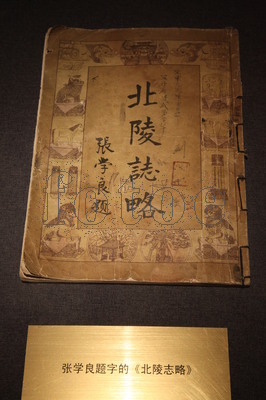 北陵誌略
張学良題
张学良题字的《北陵志略》